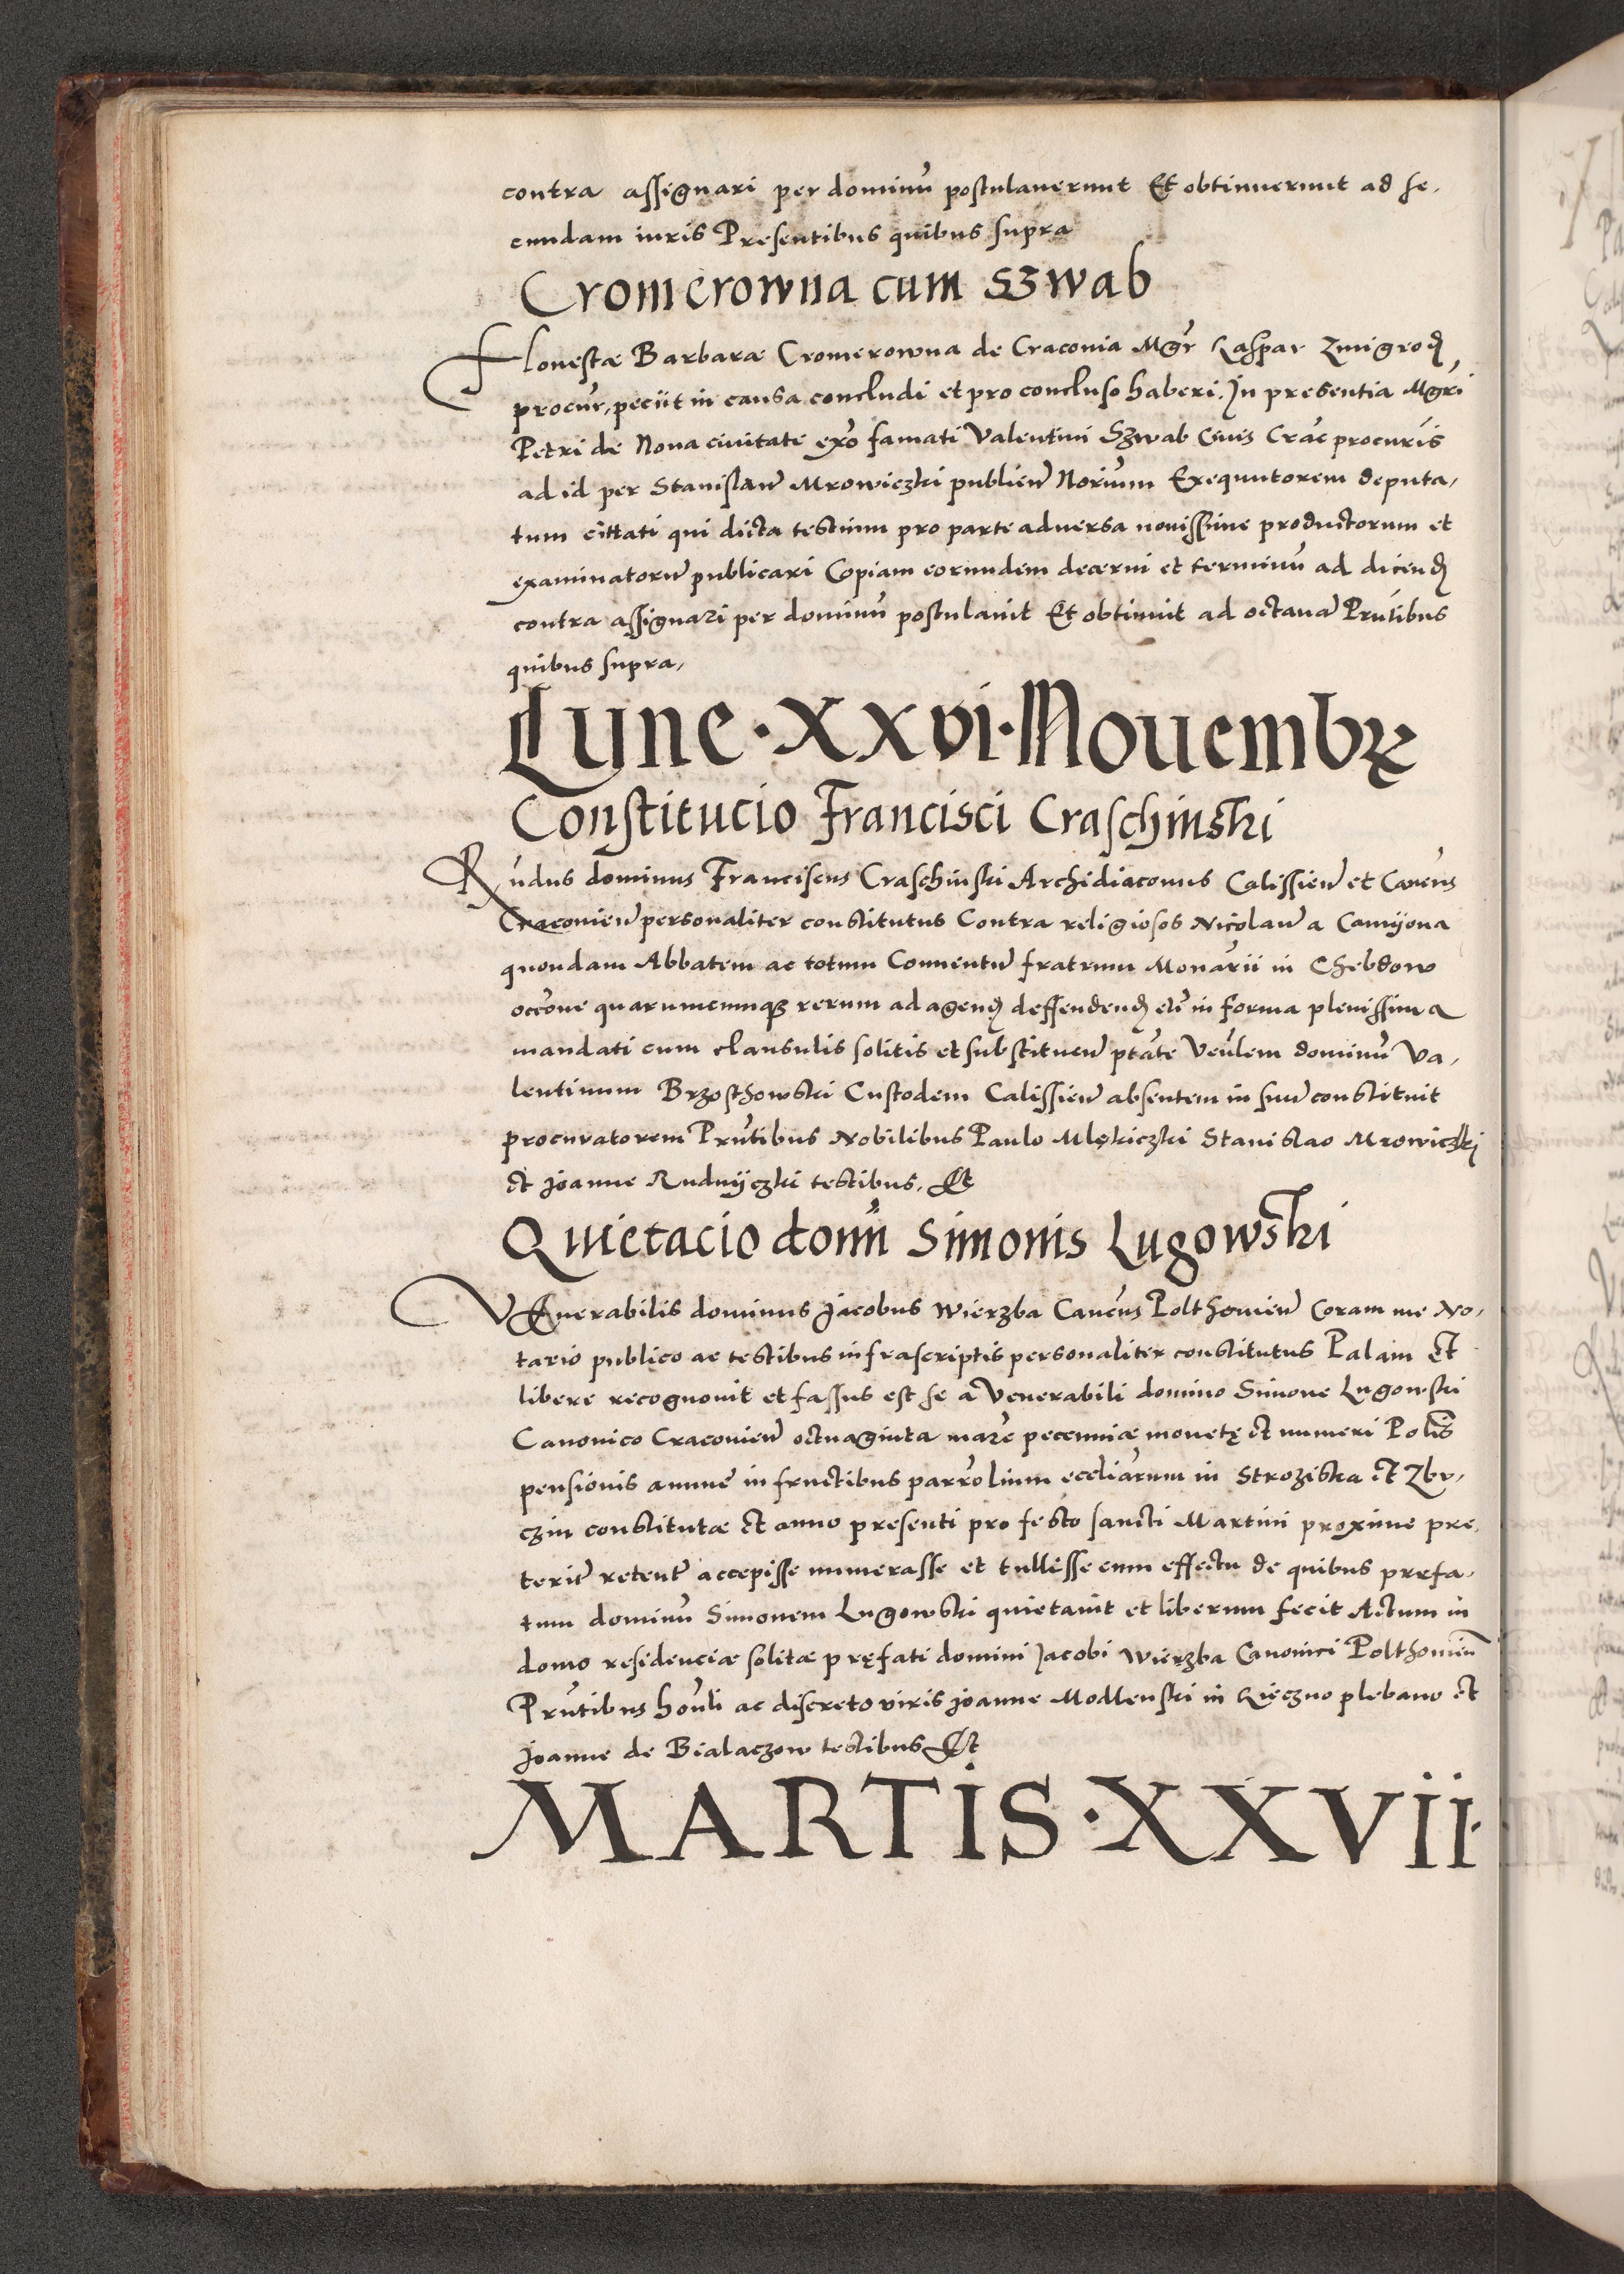 contra assignari per dominū postulauerunt Et obtinuerunt ad se,
cundam iuris Presentibus quibus supra
Cromerowna cum Szwab
Honestæ Barbaræ Cromerowna de Craconia Mgr̄ Kaspar Zmigrod
procur̄, peciit in causa concludi et pro concluso haberi. In presentia Mgr̄i
Petri de Noua ciuitate exo᷑ famati Valentini Szwab Ciuis Crac̄ procuris
ad id per Stanislaū Mrowiczki publicū Norium Exequutorem deputa,
tum cittati qui dicta testium pro parte aduersa nouissime productorum et
examinatorū publicari Copiam eorundem decerni et terminū ad dicend
contra assignari per dominū postulauit Et obtinuit ad octauā Prn̄tibus
quibus supra,
Lune · xxvi · Nouembr
Constitucio Francisci Craschinski
Rn̄dus dominus Franciscus Craschinski Archidiaconus Calissien̄ et Cancus
Craconien̄ personaliter constitutus Contra religiosos Nicolaū a Camyona
quondam Abbatem ac totum Conuentū fratrum Monarii in Chebdow
occo᷑ne quarumcumqȝ rerum ad agend deffendend etc̄ in forma plenissima
mandati cum clausulis solitis et substituen̄ ptāte Ven̄lem dominū Va,
lentinum Brzosthowski Custodem Calissien̄ absentem in suū constituit
procuratorem Prn̄tibus Nobilibus Paulo Mlękiczki Stanislao Mrowiczki
et Joanne Rudnyczki testibus, Et
Quietacio domn̄i Simonis Lugowski
VEnerabilis dominus Jacobus Wierzba Cancus Polthouien̄ Coram me No,
tario publico ac testibus infrascriptis personaliter constitutus Palam et
libere recognouit et fassus est se a Venerabili domino Simone Lugowski
Canonico Craconien̄ octuaginta marc̄ pecunniæ monetę et numeri Polis̄
pensionis annue in fructibus parrolium eccliārum in Stroziska et Zbr,
czin constitutæ et anno presenti pro festo sancti Martini proxime pre,
terit̄ retent̄ accepisse numerasse et tullisse cum effectu de quibus prefa,
tum dominū Simonem Lugowski quietauit et liberum fecit Actum in
domo residenciæ solitæ pręfati domini Jacobi Wierzba Canonici Polthouien̄
Prn̄tibus hon̄li ac discreto viris Joanne Modlenski in Kięczno plebano et
Joanne de Bialaczow testibus Et
MARTIS · XXVII ·